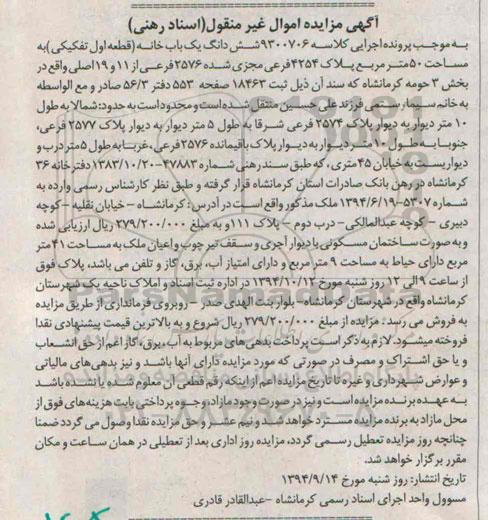 آگهی مزایده اموال غیر منقول(اسناد رهنی)
به موجب پرونده اجرایی کلاسه ۹۳۰۰۷۰۶ شش دانگ یک باب خانه (قطعه اول تفکیکی) به
مساحت ۵۰ متر مربع پلاک ۴۲۵۴ فرعی مجزی شده ۲۵۷۶ فرعی از ۱۱ و ۱۹ اصلی واقع در
بخش ۳ حومه کرمانشاه که سند آن ذیل ثبت ۱۸۴۶۳ صفحه ۵۵۳ دفتر ۵۶/۳ صادر و مع الواسطه
به خانم سیما رستمی فرزند علی حسین منتقل شده است و محدود است به حدود: شمالا به طول
۱۰ متر دیوار به دیوار پلاک ۲۵۷۴ فرعی شرقا به طول ۵ متر دیوار به دیوار پلاک ۲۵۷۷ فرعی،
جنوبا به طول ۱۰ متر دیوار به دیوار پلاک باقیمانده ۲۵۷۶ فرعی، غربا به طول ۵ متر درب و
دیواریست به خیابان ۴۵ متری، که طبق سند رهنی شماره ۴۷۸۸۳-۱۳۸۳/۱۰/۲۰ دفترخانه ۳۶
کرمانشاه در رهن بانک صادرات استان کرمانشاه قرار گرفته و طبق نظر کارشناس رسمی وارده به
شماره ۵۳۰۷-۱۳۹۴/۶/۱۹ ملک مذکور واقع است در آدرس: کرمانشاه – خیابان نقلیه – کوچه
دبیری – کوچه عبدالمالکی – درب دوم – پلاک ۱۱۱ و به مبلغ ۲۷۹/۲۰۰/۰۰۰ ریال ارزیابی شده
و به صورت ساختمان مسکونی با دیوار آجری و سقف تیر چوب و اعیان ملک به مساحت ۴۱ متر
مربع دارای حیاط به مساحت ۹ متر مربع و دارای امتیاز آب، برق، گاز و تلفن می باشد، پلاک فوق
از ساعت ۹ الی ۱۲ روز شنبه مورخ ۱۳۹۴/۱۰/۱۲ در اداره ثبت اسناد و املاک ناحیه یک شهرستان
کرمانشاه واقع در شهرستان کرمانشاه – بلوار بنت الهدی صدر – روبروی فرمانداری از طریق مزایده
به فروش می رسد: مزایده از مبلغ ۲۷۹/۲۰۰/۰۰۰ ریال شروع و به بالاترین قیمت پیشنهادی نقدا
فروخته میشود. لازم به ذکر است پرداخت بدهی های مربوط به آب، برق، گاز اعم از حق انشعاب
و یا حق اشتراک و مصرف در صورتی که مورد مزایده دارای آنها باشد و نیز بدهی های مالیاتی
و عوارض شهرداری و غیره تا تاریخ مزایده اعم از اینکه رقم قطعی آن معلوم شده یا نشده باشد
به عهده برنده مزایده است و نیز در صورت وجود مازاد، وجوه پرداختی بابت هزینه های فوق از
محل مازاد به برنده مزایده مسترد خواهد شد و نیم عشر و حق مزایده نقدا وصول می گردد ضمنا
چنانچه روز مزایده تعطیل رسمی گردد، مزایده روز اداری بعد از تعطیلی در همان ساعت و مکان
مقرر برگزار خواهد شد.
تاریخ انتشار: روز شنبه مورخ ۱۳۹۴/۹/۱۴
مسوول واحد اجرای اسناد رسمی کرمانشاه – عبدالقادر قادری
۰۲۱-۸۸۳۴۹۶۷۰-۵